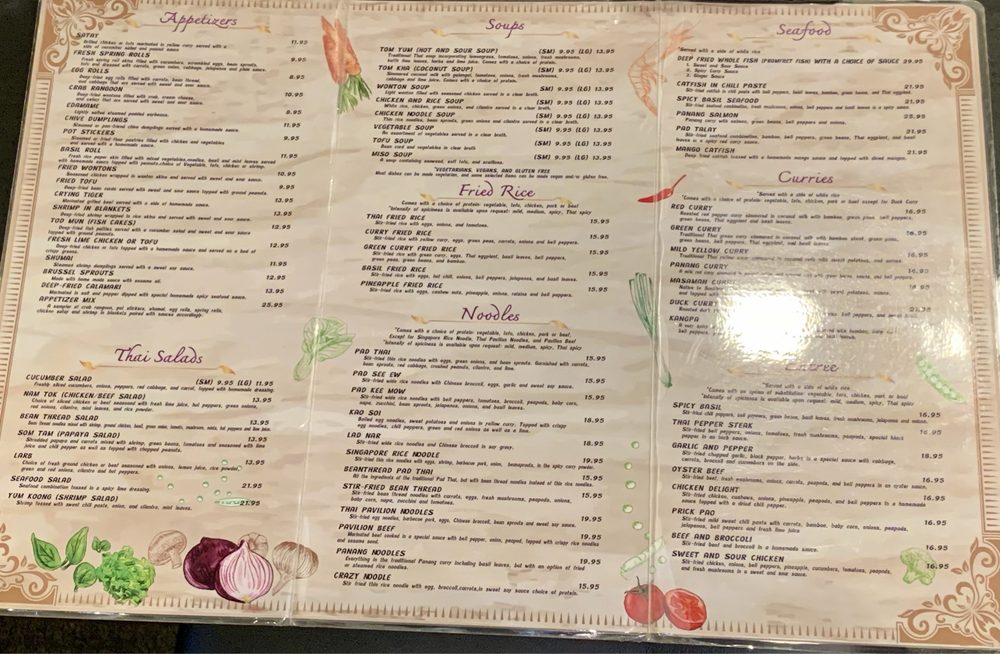 Appetizers
SATAY 11.95
Grilled chicken or tofu marinated in yellow curry served with a
side of cucumber salad and peanut sauce
FRESH SPRING ROLLS 8.95
Fresh spring roll skins filled with cucumbers, scrambled eggs, bean sprouts,
EGG ROLLS 8.95
Deep-fried egg rolls filled with carrots, bean thread,
and cabbage that are served with sweet and sour sauce.
CRAB RANGOON 10.95
Deep-fried wontons filled with crab, cream cheese,
and celery that are served with sweet and sour sauce.
EDAMAME 8.95
Lightly salted steamed painted soybeans.
CHIVE DUMPLINGS 11.95
Steamed or pan-fried chive dumplings served with a homemade sauce.
POT STICKERS 9.95
Steamed or fried thin pastries filled with chicken and vegetables
and served with a homemade sauce.
BASIL ROLL 11.95
Fresh rice paper skins filled with mixed vegetables,noodles, basil and mint leaves served
with homemade sauce topped with peanuts.choice of Vegetable, tofu, chicken, or shrimp.
FRIED WONTONS 10.95
Seasoned chicken wrapped in wonton skins and served with sweet and sour sauce.
FRIED TOFU 9.95
Deep-fried bean curds served with sweet and sour sauce topped with ground peanuts.
CRYING TIGER 13.95
Marinated grilled beef served with a side of homemade sauce.
SHRIMP IN BLANKETS 13.95
Deep-fried shrimp wrapped in rice skins and served with sweet and sour sauce.
TOD MUN (FISH CAKES) 12.95
Deep-fried fish patties served with a cucumber salad and sweet and sour sauce
topped with ground peanuts.
FRESH LIME CHICKEN OR TOFU 12.95
Deep-fried chicken or tofu topped with a homemade sauce and served on a bed of
crispy greens.
SHUMAI 11.95
Steamed shrimp dumplings served with a sweet soy sauce.
BRUSSEL SPROUTS 12.95
Made with home made sauce with sesame oil.
DEEP-FRIED CALAMARI 13.95
Marinated in salt and pepper dipped with special homemade spicy seafood sauce.
APPETIZER MIX 25.95
A sampler of crab rangoon, pot stickers, shumai, egg rolls, spring rolls,
chicken satay and shrimp in blankets paired with sauces accordingly.
Thai Salads
CUCUMBER SALAD (SM) 9.95 (LG) 11.95
Freshly sliced cucumbers, onions, peppers, red cabbage, and carrot, topped with homemade dressing.
NAM TOK (CHICKEN/BEEF SALAD) 13.95
Choice of sliced chicken or beef seasoned with fresh lime juice, hot peppers, green onions,
red onions, cilantro, mint leaves, and rice powder.
BEAN THREAD SALAD 13.95
SOM TAM (PAPAYA SALAD) 13.95
Shredded papaya and carrots mixed with shrimp, green beans, tomatoes and seasoned with lime
juice and chili pepper as well as topped with chopped peanuts.
LARB 13.95
Choice of fresh ground chicken or beef seasoned with onions, lemon juice, rice powder,
green and red onions, cilantro and bell peppers.
SEAFOOD SALAD 21.95
Seafood combination tossed in a spicy lime dressing.
YUM KOONG (SHRIMP SALAD) 21.95
Shrimp tossed with sweet chili paste, onion, and cilantro, mint leaves.
Soups
TOM YUM (HOT AND SOUR SOUP) (SM) 9.95 (LG) 13.95
Traditional Thai soup incorporating lemongrass, tomatoes, onions, fresh mushrooms,
kaffir lime leaves, herbs and lime juice. Comes with a choice of protein.
TOM KHA (COCONUT SOUP) (SM) 9.95 (LG) 13.95
Simmered coconut with galangal, tomatoes, onions, fresh mushrooms,
cabbage and lime juice. Comes with a choice of protein.
WONTON SOUP (SM) 9.95 (LG) 13.95
Light wonton filled with seasoned chicken served in a clear broth.
CHICKEN AND RICE SOUP (SM) 9.95 (LG) 13.95
White rice, chicken, green onions, and cilantro served in a clear broth.
CHICKEN NOODLE SOUP (SM) 9.95 (LG) 13.95
Thin rice noodles, bean sprouts, green onions, and cilantro served in a clear broth.
VEGETABLE SOUP (SM) 9.95 (LG) 13.95
An assortment of vegetables served in a clear broth.
TOFU SOUP (SM) 9.95 (LG) 13.95
Bean curd and vegetables in clear broth
MISO SOUP (SM) 9.95 (LG) 13.95
A soup containing seaweed, soft tofu, and scallions.
*VEGETARIANS, VEGANS, AND GLUTEN FREE
Most dishes can be made vegetarian, and some selected items can be made vegan and/or gluten free.
Fried Rice
*Comes with a choice of protein: vegetable, tofu, chicken, pork or beef
*Intensity of spiciness is available upon request: mild, medium, spicy, Thai spicy
THAI FRIED RICE 15.95
Stir-fried rice with eggs, onions, and tomatoes.
CURRY FRIED RICE 15.95
Stir-fried rice with yellow curry, eggs, green peas, carrots, onions and bell peppers.
GREEN CURRY FRIED RICE 15.95
Stir-fried rice with green curry, eggs, Thai eggplant, basil leaves, bell peppers,
green peas, green beans, and bamboo.
BASIL FRIED RICE 15.95
Stir-fried rice with eggs, hot chili, onions, bell peppers, jalapenos, and basil leaves.
PINEAPPLE FRIED RICE 15.95
Stir-fried rice with eggs, cashew nuts, pineapple, onions, raisins and bell peppers.
Noodles
*Comes with a choice of protein: vegetable, tofu, chicken, pork or beef.
Except for Singapore Rice Noodle, Thai Pavilion Noodles, and Pavilion Beef
*Intensity of spiciness is available upon request: mild, medium, spicy, Thai spicy
PAD THAI 15.95
Stir-fried thin rice noodles with eggs, green onions, and bean sprouts. Garnished with carrots,
bean sprouts, red cabbage, crushed peanuts, cilantro, and lime.
PAD SEE EW 15.95
Stir-fried wide rice noodles with Chinese broccoli, eggs, garlic and sweet soy sauce.
PAD KEE MOW 15.95
Stir-fried wide rice noodles with bell peppers, tomatoes, broccoli, peapods, baby corn,
napa, zucchini, bean sprouts, jalapenos, onions, and basil leaves.
KAO SOI 18.95
Boiled egg noodles, sweet potatoes and onions in yellow curry. Topped with crispy
egg noodles, chili peppers, green and red onions as well as a lime.
LAD NAR 15.95
Stir-fried wide rice noodles and Chinese broccoli in soy gravy.
SINGAPORE RICE NOODLE 19.95
Stir-fried thin rice noodles with eggs, shrimp, barbecue pork, onion, beansprouts, in the spicy curry powder.
BEANTHREAD PAD THAI 15.95
All the ingredients of the traditional Pad Thai, but with bean thread noodles instead of thin rice noodles.
STIR-FRIED BEAN THREAD 15.95
Stir-fried bean thread noodles with carrots, eggs, fresh mushrooms, peapods, onions,
baby corn, napa, zucchini and tomatoes.
THAI PAVILION NOODLES 19.95
Stir-fried egg noodles, barbecue pork, eggs, Chinese broccoli, bean sprouts and sweet soy sauce.
PAVILION BEEF 19.95
Marinated beef cooked in a special sauce with bell pepper, onion, peapod, topped with crispy rice noodles
and sesame seed.
PANANG NOODLES 19.95
Everything in the traditional Panang curry including basil leaves, but with an option of fried
or steamed rice noodles.
CRAZY NOODLE 15.95
Stir fried thin rice noodle with egg, broccoli,carrots,in sweet soy sauce choice of protein.
Seafood
*Served with a side of white rice
DEEP FRIED WHOLE FISH (POMPRET FISH) WITH A CHOICE OF SAUCE 29.95
1. Sweet and Sour Sauce
2. Spicy Curry Sauce
3. Ginger Sauce
CATFISH IN CHILI PASTE 21.95
Stir-fried catfish in chili paste with bell peppers, basil leaves, bamboo, green beans, and Thai eggplant.
SPICY BASIL SEAFOOD 21.95
Stir-fried seafood combination, fresh mushrooms, onions, bell peppers and basil leaves in a spicy sauce.
PANANG SALMON 25.95
Panang curry with salmon, green beans, bell peppers and onions.
PAD TALAY 21.95
Stir-fried seafood combination, bell peppers, green beans, Thai eggplant, and basil
leaves in a spicy red curry sauce.
MANGO CATFISH 21.95
Deep fried catfish tossed with a homemade mango sauce and topped with sliced mangos.
Curries
*Served with a side of white rice
*Comes with a choice of protein: vegetable, tofu, chicken, pork or beef except for Duck Curry
RED CURRY 16.95
Roasted red pepper curry simmered in coconut milk with bamboo, green peas, bell peppers,
green beans, Thai eggplant and basil leaves.
GREEN CURRY 16.95
Traditional Thai green curry simmered in coconut milk with bamboo shoot, green peas,
green beans, bell peppers, Thai eggplant, and basil leaves
MILD YELLOW CURRY 16.95
Traditional Thai yellow curry simmered in coconut milk with sweet potatoes, and onions.
PANANG CURRY 16.95
MASAMAN CURRY
DUCK CURRY
KANGPA
Entree
*Served with a side of white rice
*Comes with an option of substitutions: vegetable, tofu, chicken, pork or beef
*Intensity of spiciness is available upon request: mild, medium, spicy, Thai spicy
SPICY BASIL 16.95
Stir-fried chili peppers, bell peppers, green beans, basil leaves, fresh mushrooms, jalapenos, and onions.
THAI PEPPER STEAK 16.95
Stir-fried bell peppers, onions, tomatoes, fresh mushrooms, peapods, special black
pepper in an back sauce.
GARLIC AND PEPPER 18.95
Stir-fried chopped garlic, black pepper, herbs in a special sauce with cabbage,
carrots, broccoli and cucumbers on the side.
OYSTER BEEF 16.95
Stir-fried beef, fresh mushrooms, onions, carrots, peas, and bell peppers in an oyster sauce.
CHICKEN DELIGHT 16.95
Stir-fried chicken, cashews, onions, pineapple, peapods, and bell peppers in a homemade
sauce topped with a dried chili pepper.
PRICK PAO 16.95
Stir-fried mild sweet chili paste with carrots, bamboo, baby corn, onions, peapods,
jalapenos, bell peppers and fresh lime juice
BEEF AND BROCCOLI 16.95
Stir-fried beef and broccoli in a homemade sauce.
SWEET AND SOUR CHICKEN 16.95
Stir-fried chicken, onions, bell peppers, pineapple, cucumbers, tomatoes, peapods,
and fresh mushrooms in a sweet and sour sauce.